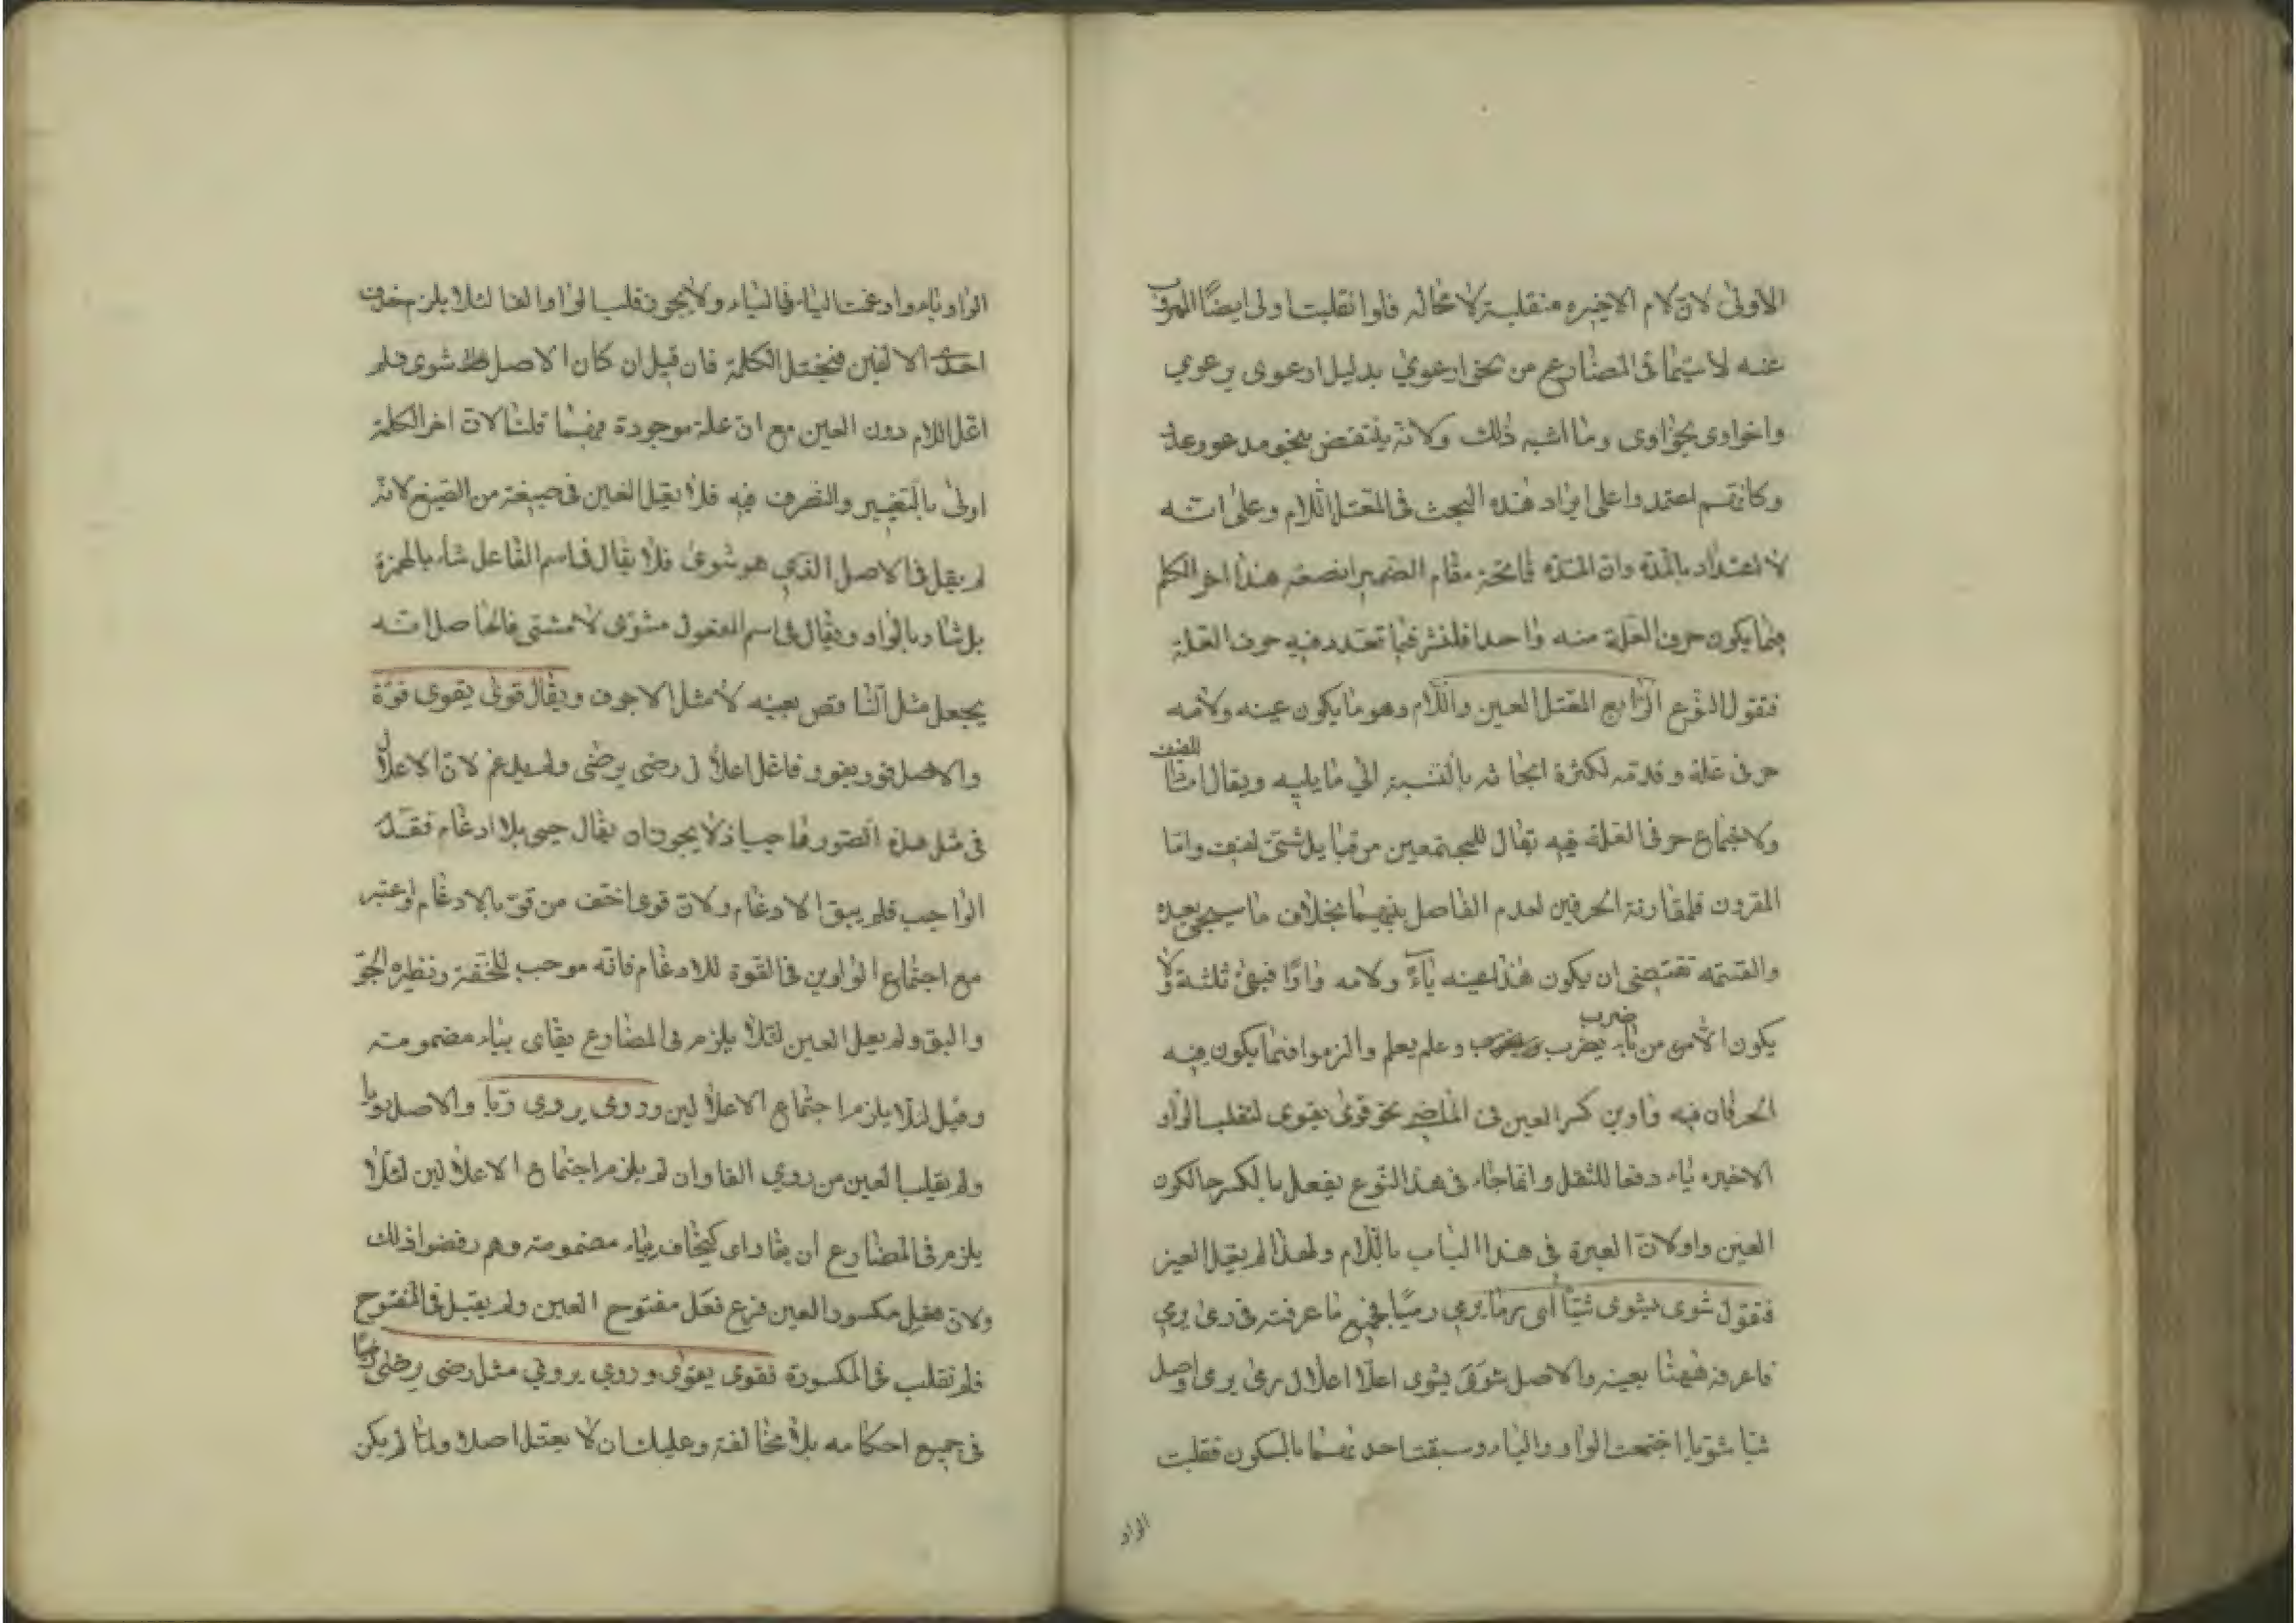 الاولى لان لام الاخيره منقلبة لا محاله فلوا نقلبت اولى ايضًا المهرب
عنه لا سيّما فى المضارع من نحو ارعوي بدليل ارعوى يرعوي
واخواوى يخواوى وما اشبه ذلك ولانه ينتقض بنحو مدعو وعدو
وكانهم اعتمدوا على ايراد هذه البحث فى المعتل اللام وعلى انه
لا اعتداد بالمدة وان المدة قائمة مقام الضمير هذا اخر الكلام
فيما يكون حرف العلة منه واحدا فلنشرع فيما تعدد فيه حرف العلة
فنقول النوع الرابع المعتل العين واللام وهو ما يكون عينه ولامه
حرفى علة وقدمه لكثرة ابحاثه بالنسبة الي ما يليه ويقال له اللفيف اما
ولاجتماع حرفى العلة فيه يقال للمجتمعين من قبايل شتى لفيف واما
المقرون فلمقارنة الحرفين لعدم الفاصل بينهما بخلاف ما سيجئ بعيده
والقسمة تقتضى ان يكون هذا عينه ياءً ولامه واوًا فبقى ثلثة ولا
يكون الامر من باب ضرب يضرب وعلم يعلم والزموا فيما يكون فيه
الحرفان فيه واوين كسر العين فى الماضى نحو قوى يقوى لتقلب الواو
الاخيره ياء دفعا للثقل وانما جاء فى هذا النوع يفعل بالكسر حالكون
العين واوا لان العبرة فى هذا الباب باللام ولهذا لم يقل العين
فنقول شوى يشوى شيّا اى رما يرمي رميًا فجميع ما عرفته فى رمى يرمي
فاعرفه ههنا بعينه والاصل شَوَىَ يشوى اعلا اعلال رمى يرمى واصل
شيا شويا اجتمعت الواو والياء وسبقت احديهما بالسكون فقلبت
الواو
الواو ياء وادغمت الياء فى الياء ولا يجوز قلب الواو الفا لئلا يلزم حذف
احدى الالفين فيختل الكلمة فان قيل ان كان الاصل شوى فلم
اعل اللام دون العين مع ان علة موجودة فيهما قلنا لان اخر الكلمة
اولى بالتغيير والتصرف فيه فلا يقل العين فى صيغة من الصيغ لانه
لم يقل فى الاصل الذي هو شوى فلا يقال فى اسم الفاعل شاء بالهمزة
بل شاو بالواو ويقال فى اسم المفعول مشوى لا مشتى فالحاصل انه
يجعل مثل الناقص بعينه لا مثل الاجوف ويقال قوى يقوى قوّة
والاصل قوو يقوو فاعل اعلال رضى يرضى ولم يدغم لان الاعلال
فى مثل هذه الصور واجب اذ لا يجوز ان يقال حيى بلا ادغام فقدّم
الواجب فلم يبق الادغام ولان قوى اخف من قوّ بالادغام واعتبر
مع اجتماع الواوين فى القوة للادغام فانه موجب للخفة ونظيره الجوّ
والبوّ ولم يعل العين لئلا يلزم فى المضارع يقاى بياء مضمومة
وقيل لئلا يلزم اجتماع الاعلالين وروى يروى ريّا والاصل رويا
ولم يقلب العين من روي الفا وان لم يلزم اجتماع الاعلالين لئلا
يلزم فى المضارع ان يقاى كيخاف بياء مضمومة وهم رفضوا ذلك
ولان فعِل مكسور العين فرع فعَل مفتوح العين ولم يقبل فى المفتوح
فلم تقلب فى المكسورة فقوى يقوى وروي يروي مثل رضى يرضى رضيًا
فى جميع احكامه بلا مخالفة وعليك ان لا يعتل اصلا ولما لم يكن